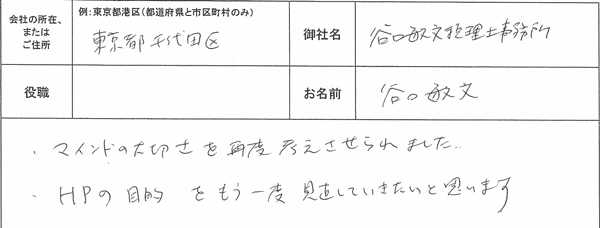 会社の所在、
または
ご住所
例:東京都港区(都道府県と市区町村のみ)
東京都千代田区
御社名
谷口敏文税理士事務所
役職
お名前
谷口敏文
・マインドの大切さを再度考えさせられました。
・HPの目的をもう一度見直していきたいと思います